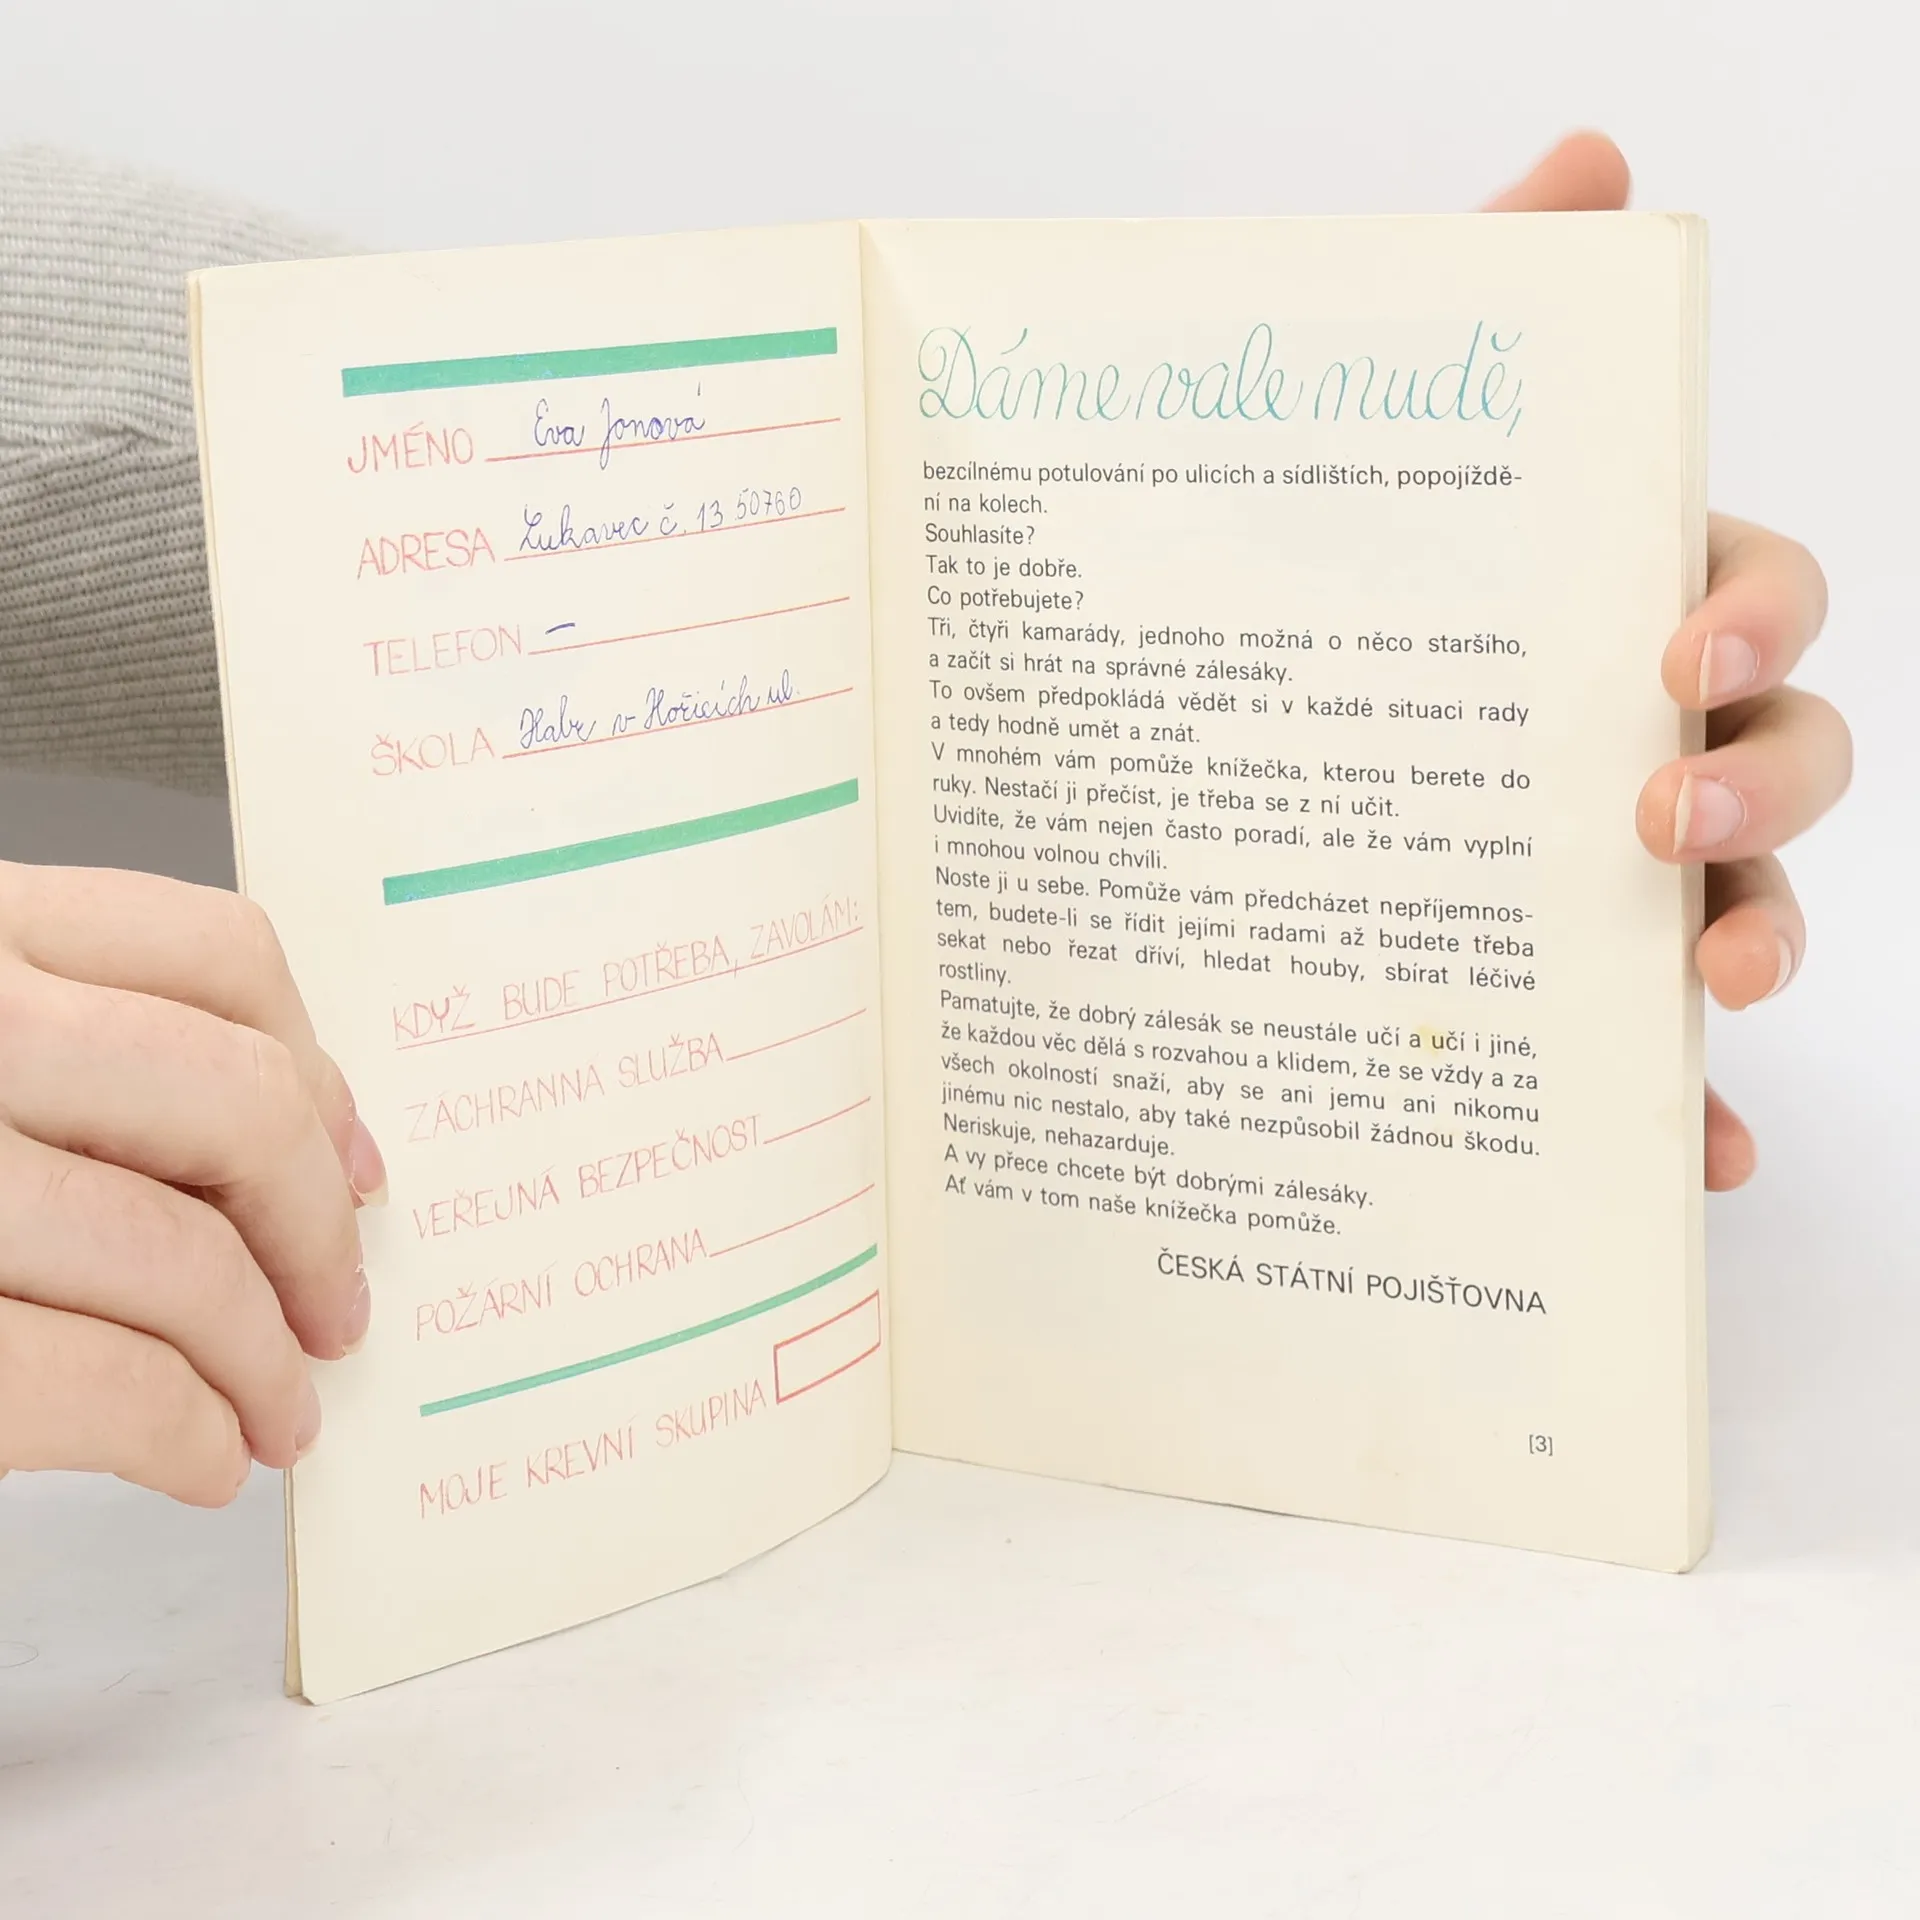 JMÉNO Eva Jonová
ADRESA Lukavec č. 13 50760
TELEFON –
ŠKOLA Habr v Hořicích ul.
KDYŽ BUDE POTŘEBA, ZAVOLÁM:
ZÁCHRANNÁ SLUŽBA
VEŘEJNÁ BEZPEČNOST
POŽÁRNÍ OCHRANA
MOJE KREVNÍ SKUPINA
Dáme vale nudě,
bezcílnému potulování po ulicích a sídlištích, popojíždě-
ní na kolech.
Souhlasíte?
Tak to je dobře.
Co potřebujete?
Tři, čtyři kamarády, jednoho možná o něco staršího,
a začít si hrát na správné zálesáky.
To ovšem předpokládá vědět si v každé situaci rady
a tedy hodně umět a znát.
V mnohém vám pomůže knížečka, kterou berete do
ruky. Nestačí ji přečíst, je třeba se z ní učit.
Uvidíte, že vám nejen často poradí, ale že vám vyplní
i mnohou volnou chvíli.
Noste ji u sebe. Pomůže vám předcházet nepříjemnos-
tem, budete-li se řídit jejími radami až budete třeba
sekat nebo řezat dříví, hledat houby, sbírat léčivé
rostliny.
Pamatujte, že dobrý zálesák se neustále učí a učí i jiné,
že každou věc dělá s rozvahou a klidem, že se vždy a za
všech okolností snaží, aby se ani jemu ani nikomu
jinému nic nestalo, aby také nezpůsobil žádnou škodu.
Neriskuje, nehazarduje.
A vy přece chcete být dobrými zálesáky.
Ať vám v tom naše knížečka pomůže.
ČESKÁ STÁTNÍ POJIŠŤOVNA
[3]